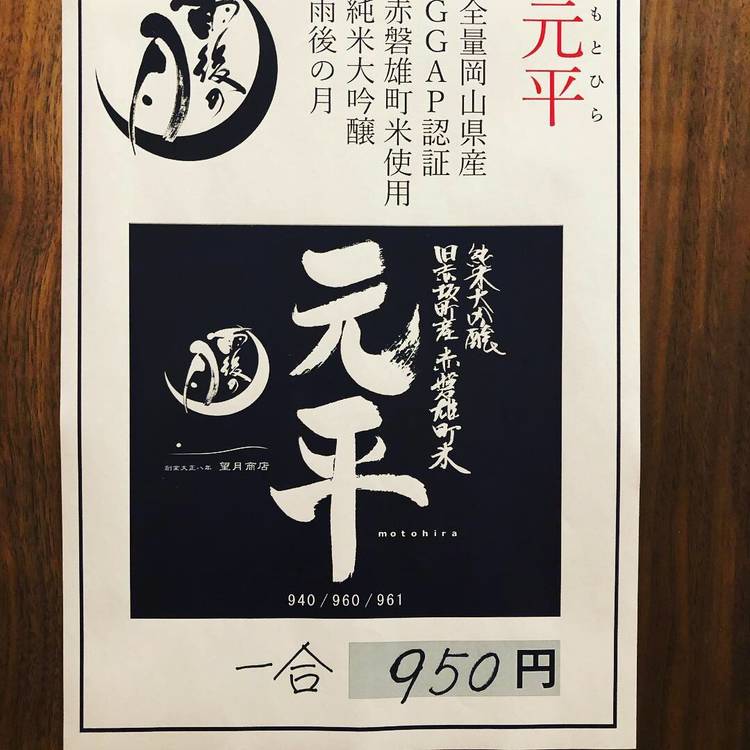 元平
もとひら
全量岡山県産
GGAP認証
赤磐雄町米使用
純米大吟醸
雨後の月
雨後の月
純米大吟醸
旧赤坂町産 赤磐雄町米
元平
雨後の月
創業大正八年 望月商店
motohira
940/960/961
一合 950円